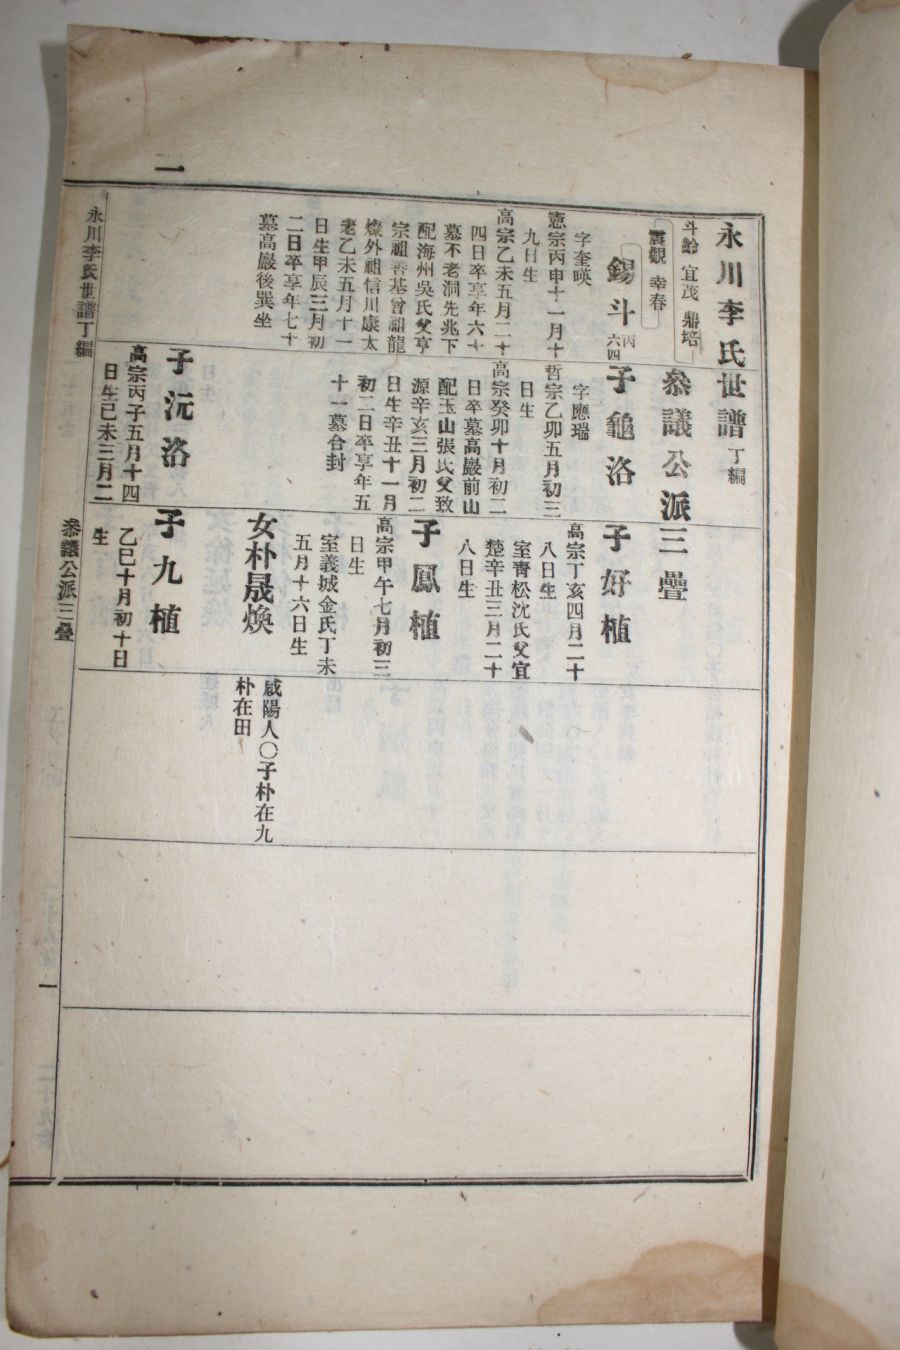 一
永川李氏世譜 丁編
斗齡 宜茂 鼎培
震觀 幸春
參議公派三疊
錫斗 丙 六四
字奎暎
憲宗丙申十一月十
九日生
高宗乙未五月二十
四日卒享年六十
墓不老洞先兆下
配海州吳氏父亨
宗祖善基曾祖龍
燦外祖信川康太
老乙未五月十一
日生甲辰三月初
二日卒享年七十
墓高巖後巽坐
子龜洛
字應瑞
哲宗乙卯五月初三
日生
高宗癸卯十月初二
日卒墓高巖前山
配玉山張氏父致
源辛亥三月初二
日生辛丑十一月
初二日卒享年五
十一墓合封
子沅洛
高宗丙子五月十四
日生己未三月二
子好植
高宗丁亥四月二十
八日生
室靑松沈氏父宜
楚辛丑三月二十
八日生
子鳳植
高宗甲午七月初三
日生
室義城金氏丁未
五月十六日生
女朴晟煥
咸陽人〇子朴在九
朴在田
子九植
乙巳十月初十日
生
永川李氏世譜丁編
參議公派三疊
一